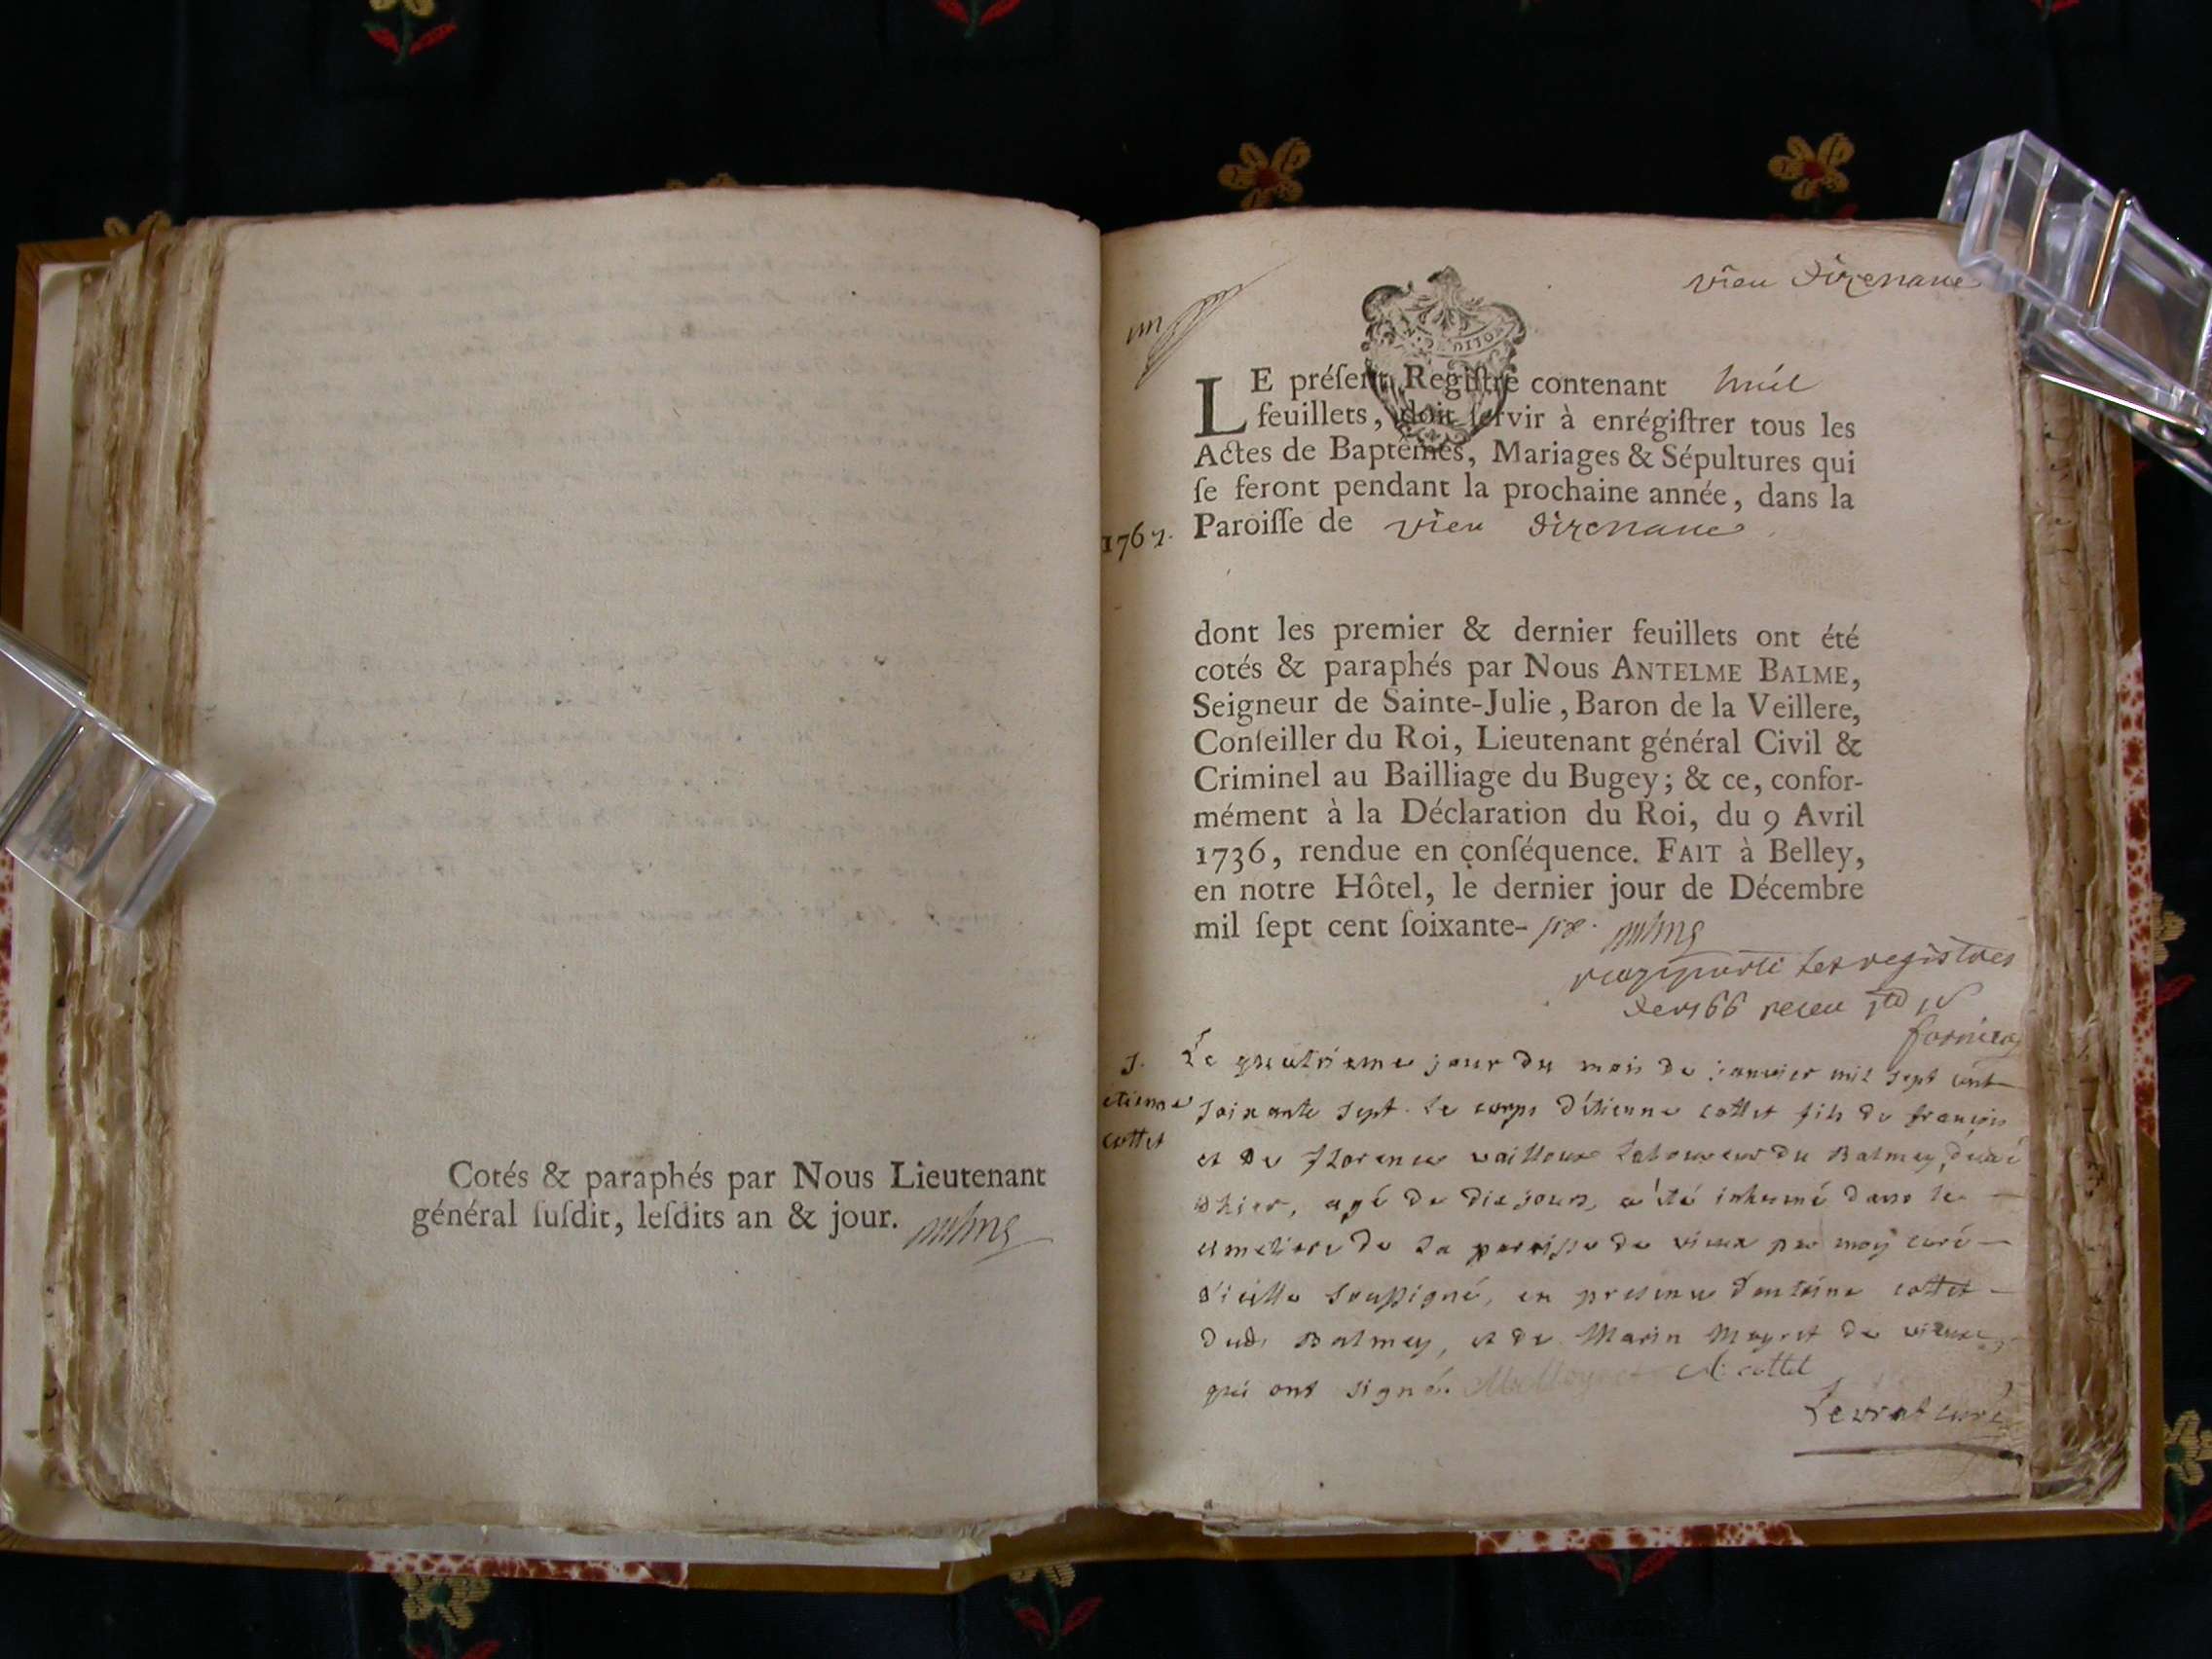 Cotés & paraphés par Nous Lieutenant
général ſuſdit, leſdits an & jour.
vieu dizenave
un
LE préſent Regiſtre contenant huit
feuillets, doit ſervir à enrégiſtrer tous les
Actes de Baptêmes, Mariages & Sépultures qui
ſe feront pendant la prochaine année, dans la
1767. Paroiſſe de vieu dizenave
dont les premier & dernier feuillets ont été
cotés & paraphés par Nous ANTELME BALME,
Seigneur de Sainte-Julie, Baron de la Veillere,
Conſeiller du Roi, Lieutenant général Civil &
Criminel au Bailliage du Bugey; & ce, confor-
mément à la Déclaration du Roi, du 9 Avril
1736, rendue en conſéquence. FAIT à Belley,
en notre Hôtel, le dernier jour de Décembre
mil ſept cent ſoixante-six.
rapporté les registres
de 1766 receu
1. Le quatrieme jour du mois de janvier mil sept cent
etienne soixante sept. le corps d'étienne cottet fils de françois
cottet et de florence vailloux laboureur du Balmey, décédé
d'hier, agé de dix jours, a été inhumé dans le
cimetiere de la paroisse de vieux par moy curé
d'icelle soussigné, en presence d'antoine cottet
dudit Balmey, et de Marin Meyret de vieux,
qui ont signé. A. cottet
Levrat curé